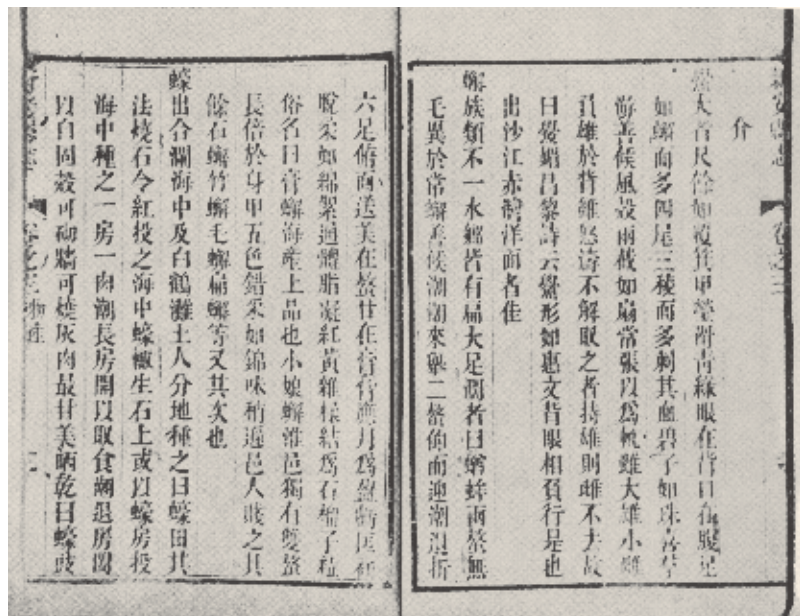 新安縣志
卷之三
介
鱟大者尺餘如覆箕甲瑩滑青綠眼在背口在腹足
如蟹而多四尾三稜而多刺其血碧子如珠
游善候風殼兩截如扇常張以為帆雌大雄小雌
負雄於背雖怒濤不解取之者持雄則雌不去故
曰鱟媚昌黎詩云鱟形如惠文背眼相負行是也
出沙江赤灣洋面者佳
蠏族類不一水蠏皆有扁大足闊者曰蝤蛑兩螯無
毛異於常蠏善候潮潮來舉二螯仰而迎潮退折
六足俯而送美在螯甘在膏膏應月為盈虧匡
脫柔如綿絮通體脂凝紅黃雜糅結為石榴子粒
俗名曰膏蠏海產上品也小娘蠏雅邑獨有雙螯
長倍於身甲五色錯采如錦味稍遜邑人賤之其
餘石蠏竹蠏毛蠏扁蠏等又其次也
蠔出合瀾海中及白鶴灘土人分地種之曰蠔田其
法燒石令紅投之海中蠔輒生石上或以蠔房投
海中種之一房一肉潮長房開以取食潮退房闔
以自固殼可砌牆可燒灰肉最甘美晒乾曰蠔豉
卷之三 物產
二